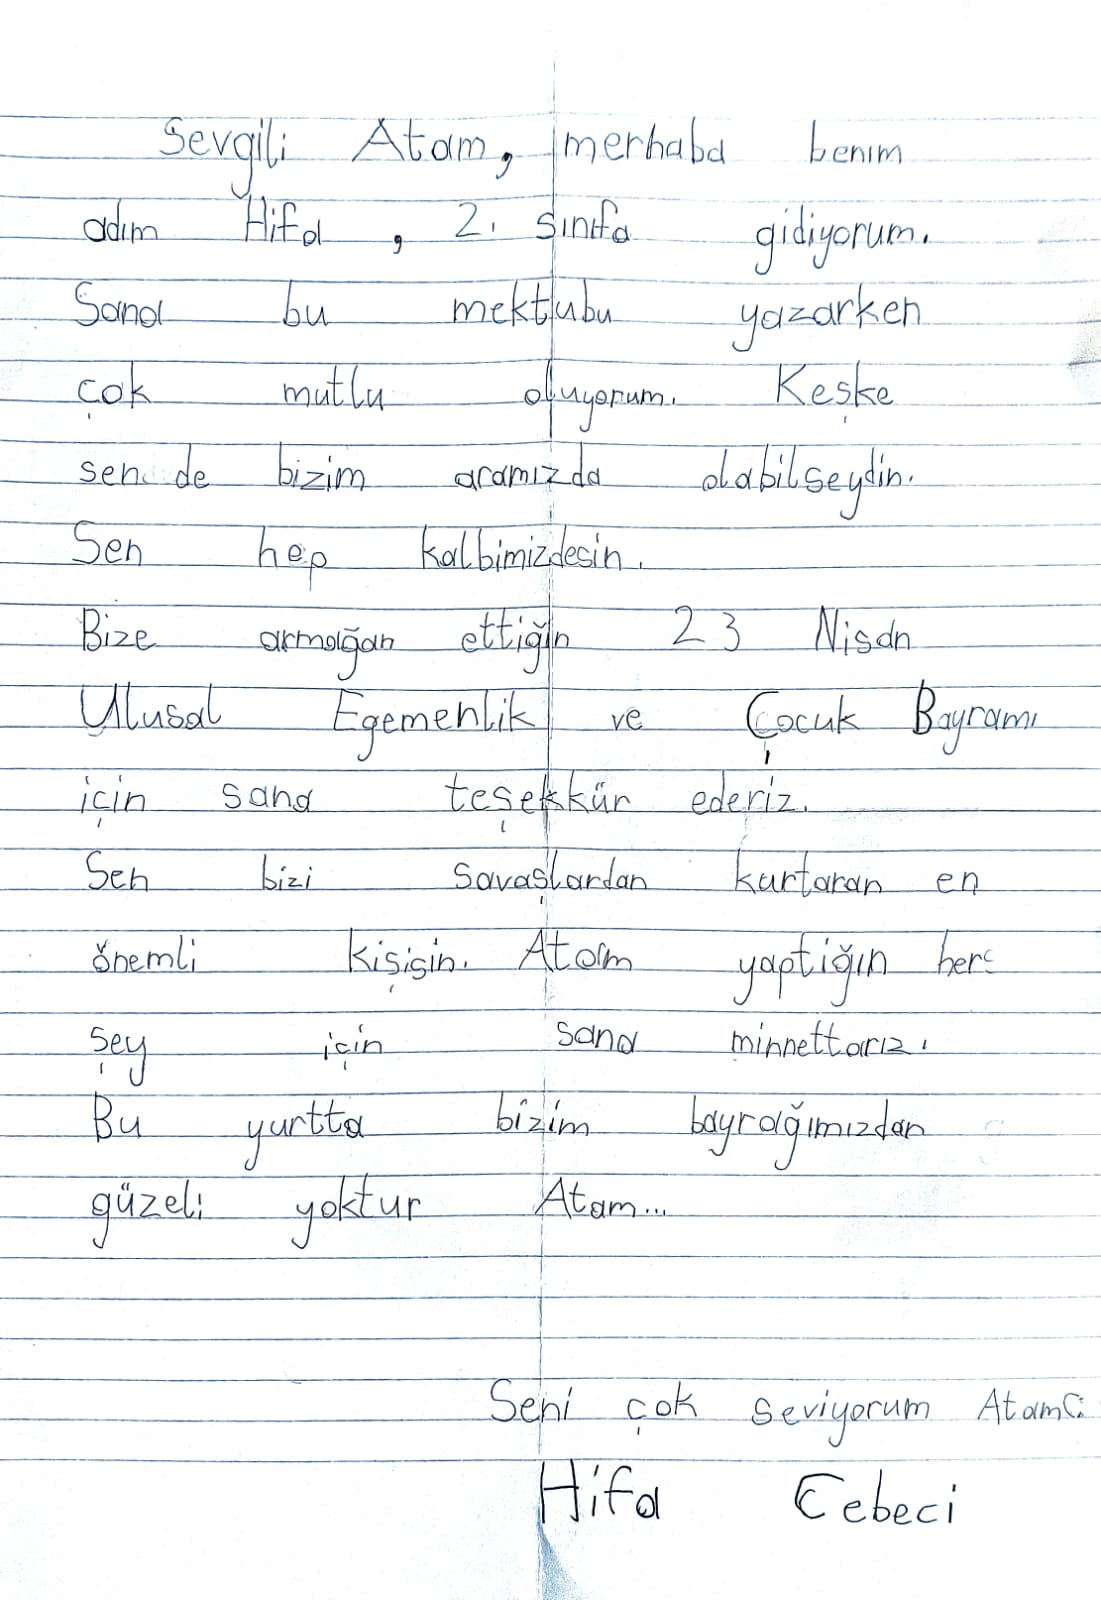 Sevgili Atam, merhaba benım
adım Hifa, 2. sınıfa gidiyorum.
Sana bu mektubu yazarken
çok mutlu oluyorum. Keşke
sen de bizim aramızda olabilseydin.
Sen hep kalbimizdesin.
Bize armağan ettiğin 23 Nisan
Ulusal Egemenlik ve Çocuk Bayramı
için sana teşekkür ederiz.
Sen bizi savaşlardan kurtaran en
önemli kişisin. Atam yaptığın her
şey için sana minnettarız.
Bu yurtta bizim bayrağımızdan
güzeli yoktur Atam...
Seni çok seviyorum Atam
Hifa Cebeci